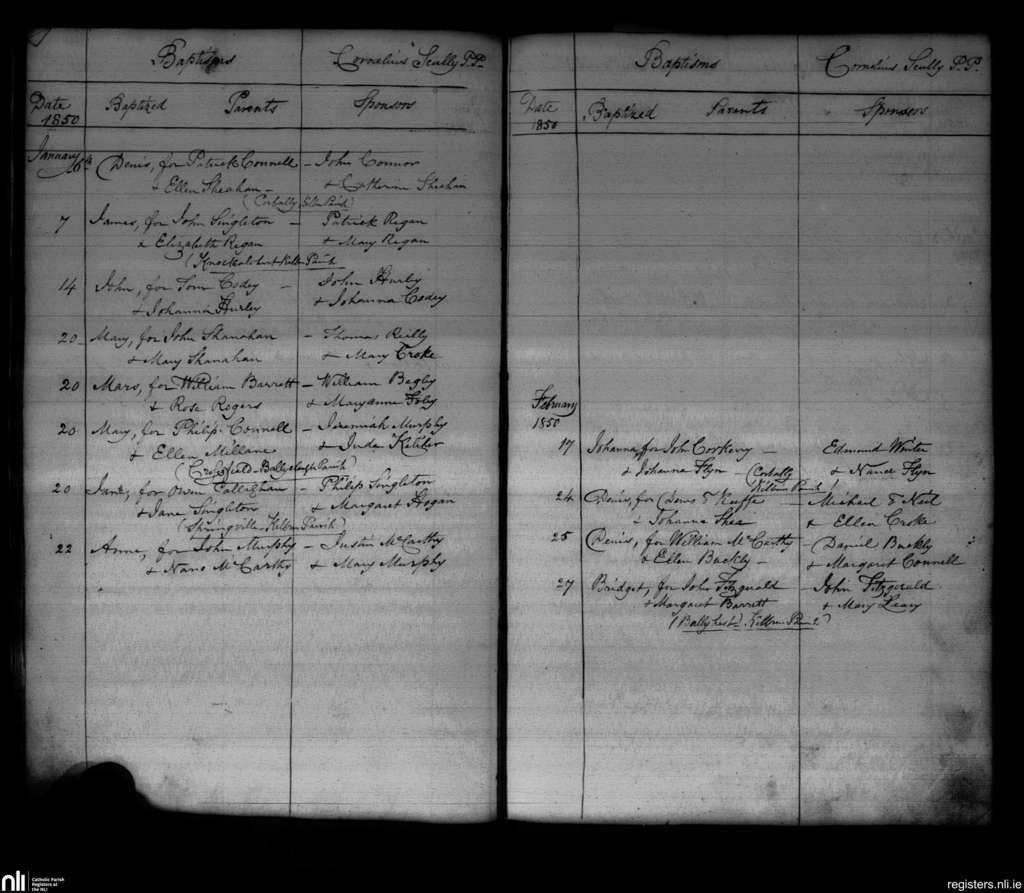 Baptisms Cornelius Scully P.P.
Date Baptized Parents Sponsors
1850
January 6th Denis, for Patrick Connell – John Connor
& Ellen Sheahan – & Catherin Sheehan
(Corbally Kilm Parish)
7 James, for John Singleton – Patrick Regan
& Elizabeth Regan & Mary Regan
14 John, for Tom Codey – John Hurly
& Johanna Hurley & Johanna Codey
20 Mary, for John Shanahan – Thomas Reilly
& Mary Shanahan & Mary Croke
20 Mars, for William Barrett – William Begly
& Rose Rogers & Maryanne Foley
20 Mary, for Philip Connell – Jeremiah Murphy
& Ellen Millane & Juda
20 Jane, for Owen Callighan – Philip Singleton
& Jane Singleton & Margaret Hogan
(Springville – Kilm Parish)
22 Anne, for John Murphy – Justin McCarthy
& Nano McCarthy & Mary Murphy
Baptisms Cornelius Scully P.P.
Date Baptized Parents Sponsors
1850
February
1850
17 Johanna, for John Corkery – Edmund Winter
& Johanna Flyn – (Corbally & Nance Flyn
Killm Parish)
24 Denis, for Denis Keeffe – Michael Neil
& Johanna Shea & Ellen Croke
25 Denis, for William McCarthy – Daniel Buckly
& Ellen Buckly – & Margaret Connell
27 Bridget, for John Fitzgerald – John Fitzgerald
& Margaret Barrett & Mary Leary
nli Catholic Parish
Registers at
the NLI
registers.nli.ie